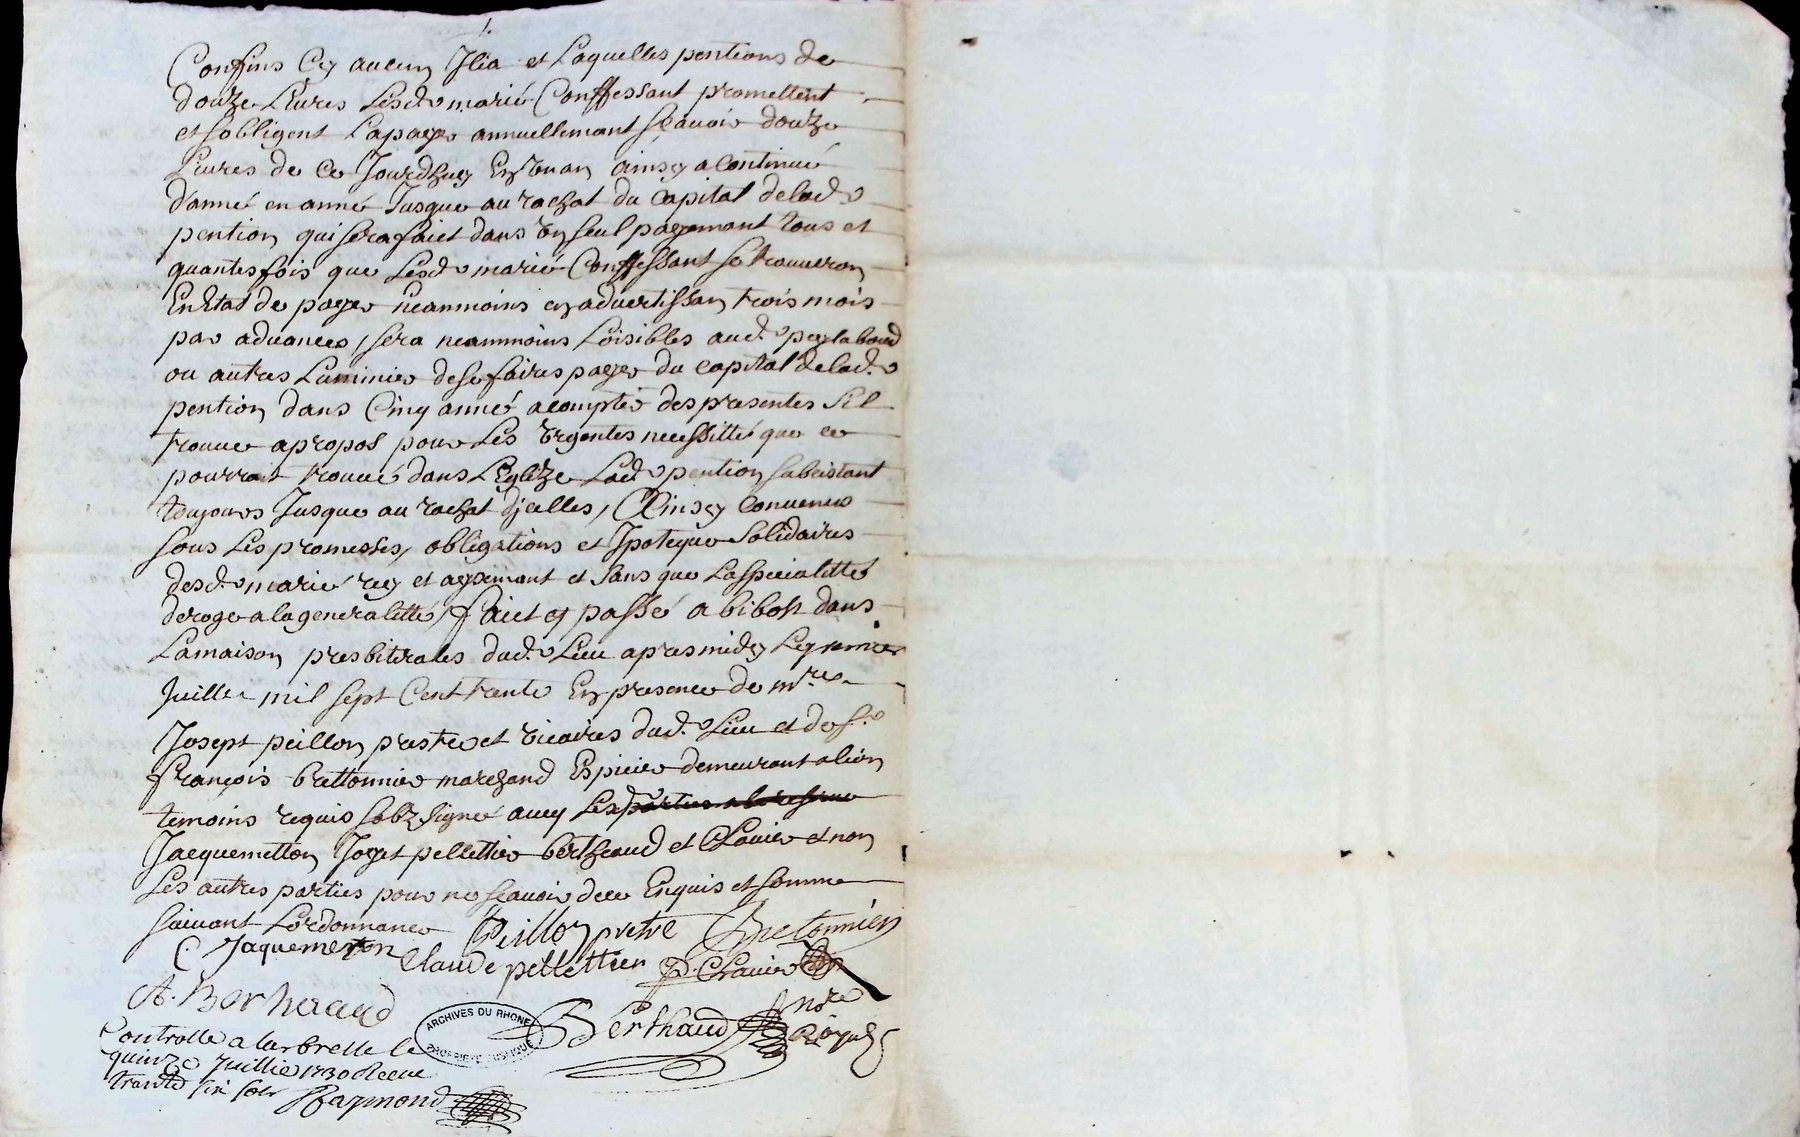 Confins Cy aucun Jlia et Laquelles pentions de
douze Liures Lesd. marié Conffessant promettent
et sobligent Lapayer annuellemant scauoir douze
Liures de ce Jourdhuy En un an ainsy a continué
d'anné en anné Jusque au rachat du capital delad.
pention qui sera faict dans un seul payemant tous et
quantes fois que Lesd. marié Conffessant se trouueron
En Etat de payer neanmoins en aduertissan trois mois
par aduances, sera neanmoins Loisibles aud. peylaboud
ou autres Luminier de se faires payer du capital delad.
pention dans Cinq anné acompter des presentes Sil
trouue apropos pour Les Urgentes necessitté que ce
pourront trouué dans L'Eglize Lad. pention subcistant
toujours Jusque au rachat djcelles, Ainsy conuenus
sous Les promesses, obligations et Jpoteque Solidaires
desd. marié rey et aysemant et sans que La specialitté
deroge a la generalitté, faict et passé a bibost dans
Lamaison presbiterales dud. Lieu apres midy Le premier
Juillet mil sept Cent trente En presence de mre
Josept peillon prestre et vicaires dud. Lieu et de sr.
françois brettonnier marchand Espicier demeurant a lion
temoins requis sobz signé auec Lesparties
Jacquemetton Joyet pellettier bertheaud et Clauier et non
Les autres parties pour ne scauoir dece Enquis et somme
suiuant Lordonnance Peillon pretre Bretonnier
C Jaquemeton Claude pellettier P. Clauier
A. Berheaud
Berthaud nore Royal
ARCHIVES DU RHONE
PROPRIETE PUBLIQUE
Controlle a larbrelle le
quinze Juillie 1730 Receu
trante six sols Raymond